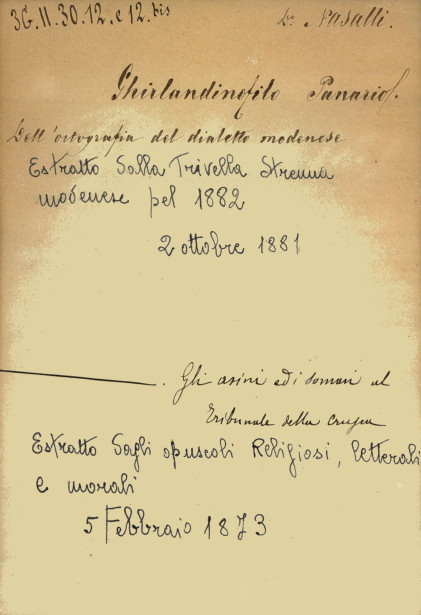 36.II.30.12. e 12.bis
Dr Nasalli.
Ghirlandinofilo Panario f.
Dell'ortografia del dialetto modenese
Estratto dalla Trivella Strenna
modenese pel 1882
2 ottobre 1881
Gli asini ed i somari al
Tribunale della Crusca
Estratto dagli opuscoli Religiosi, letterali
e morali
5 Febbraio 1873